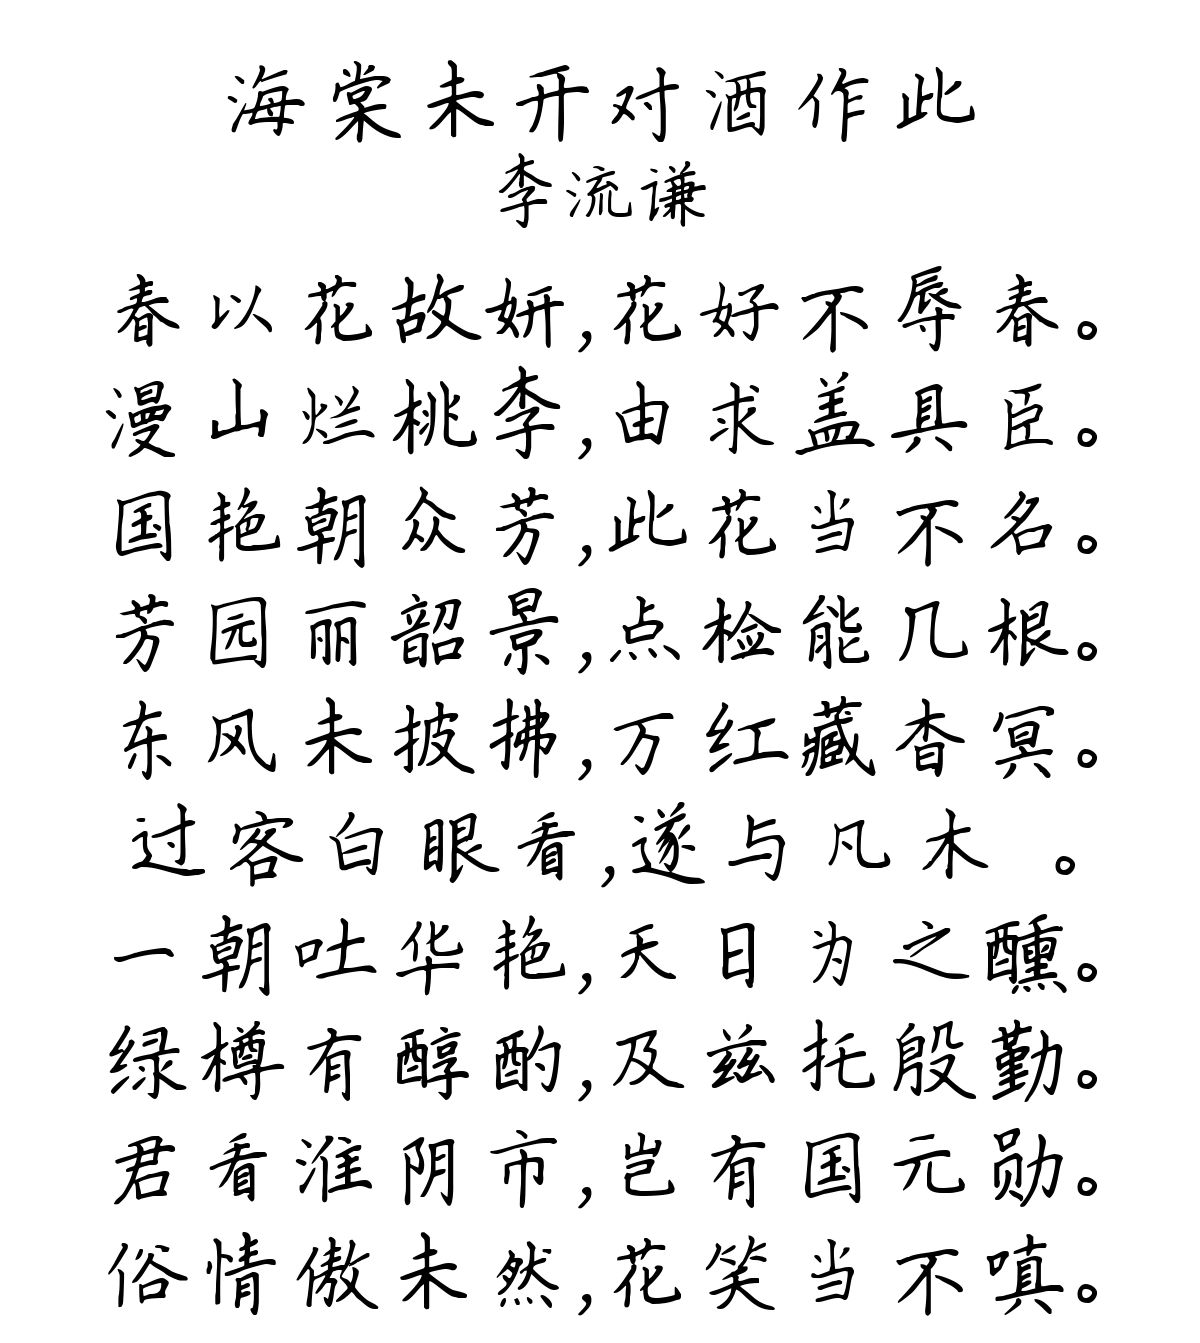 海棠未开对酒作此
李流谦
春以花故妍,花好不辱春。
漫山烂桃李,由求盖具臣。
国艳朝众芳,此花当不名。
芳园丽韶景,点检能几根。
东风未披拂,万红藏杳冥。
过客白眼看,遂与凡木 。
一朝吐华艳,天日为之醺。
绿樽有醇酌,及兹托殷勤。
君看淮阴市,岂有国元勋。
俗情傲未然,花笑当不嗔。